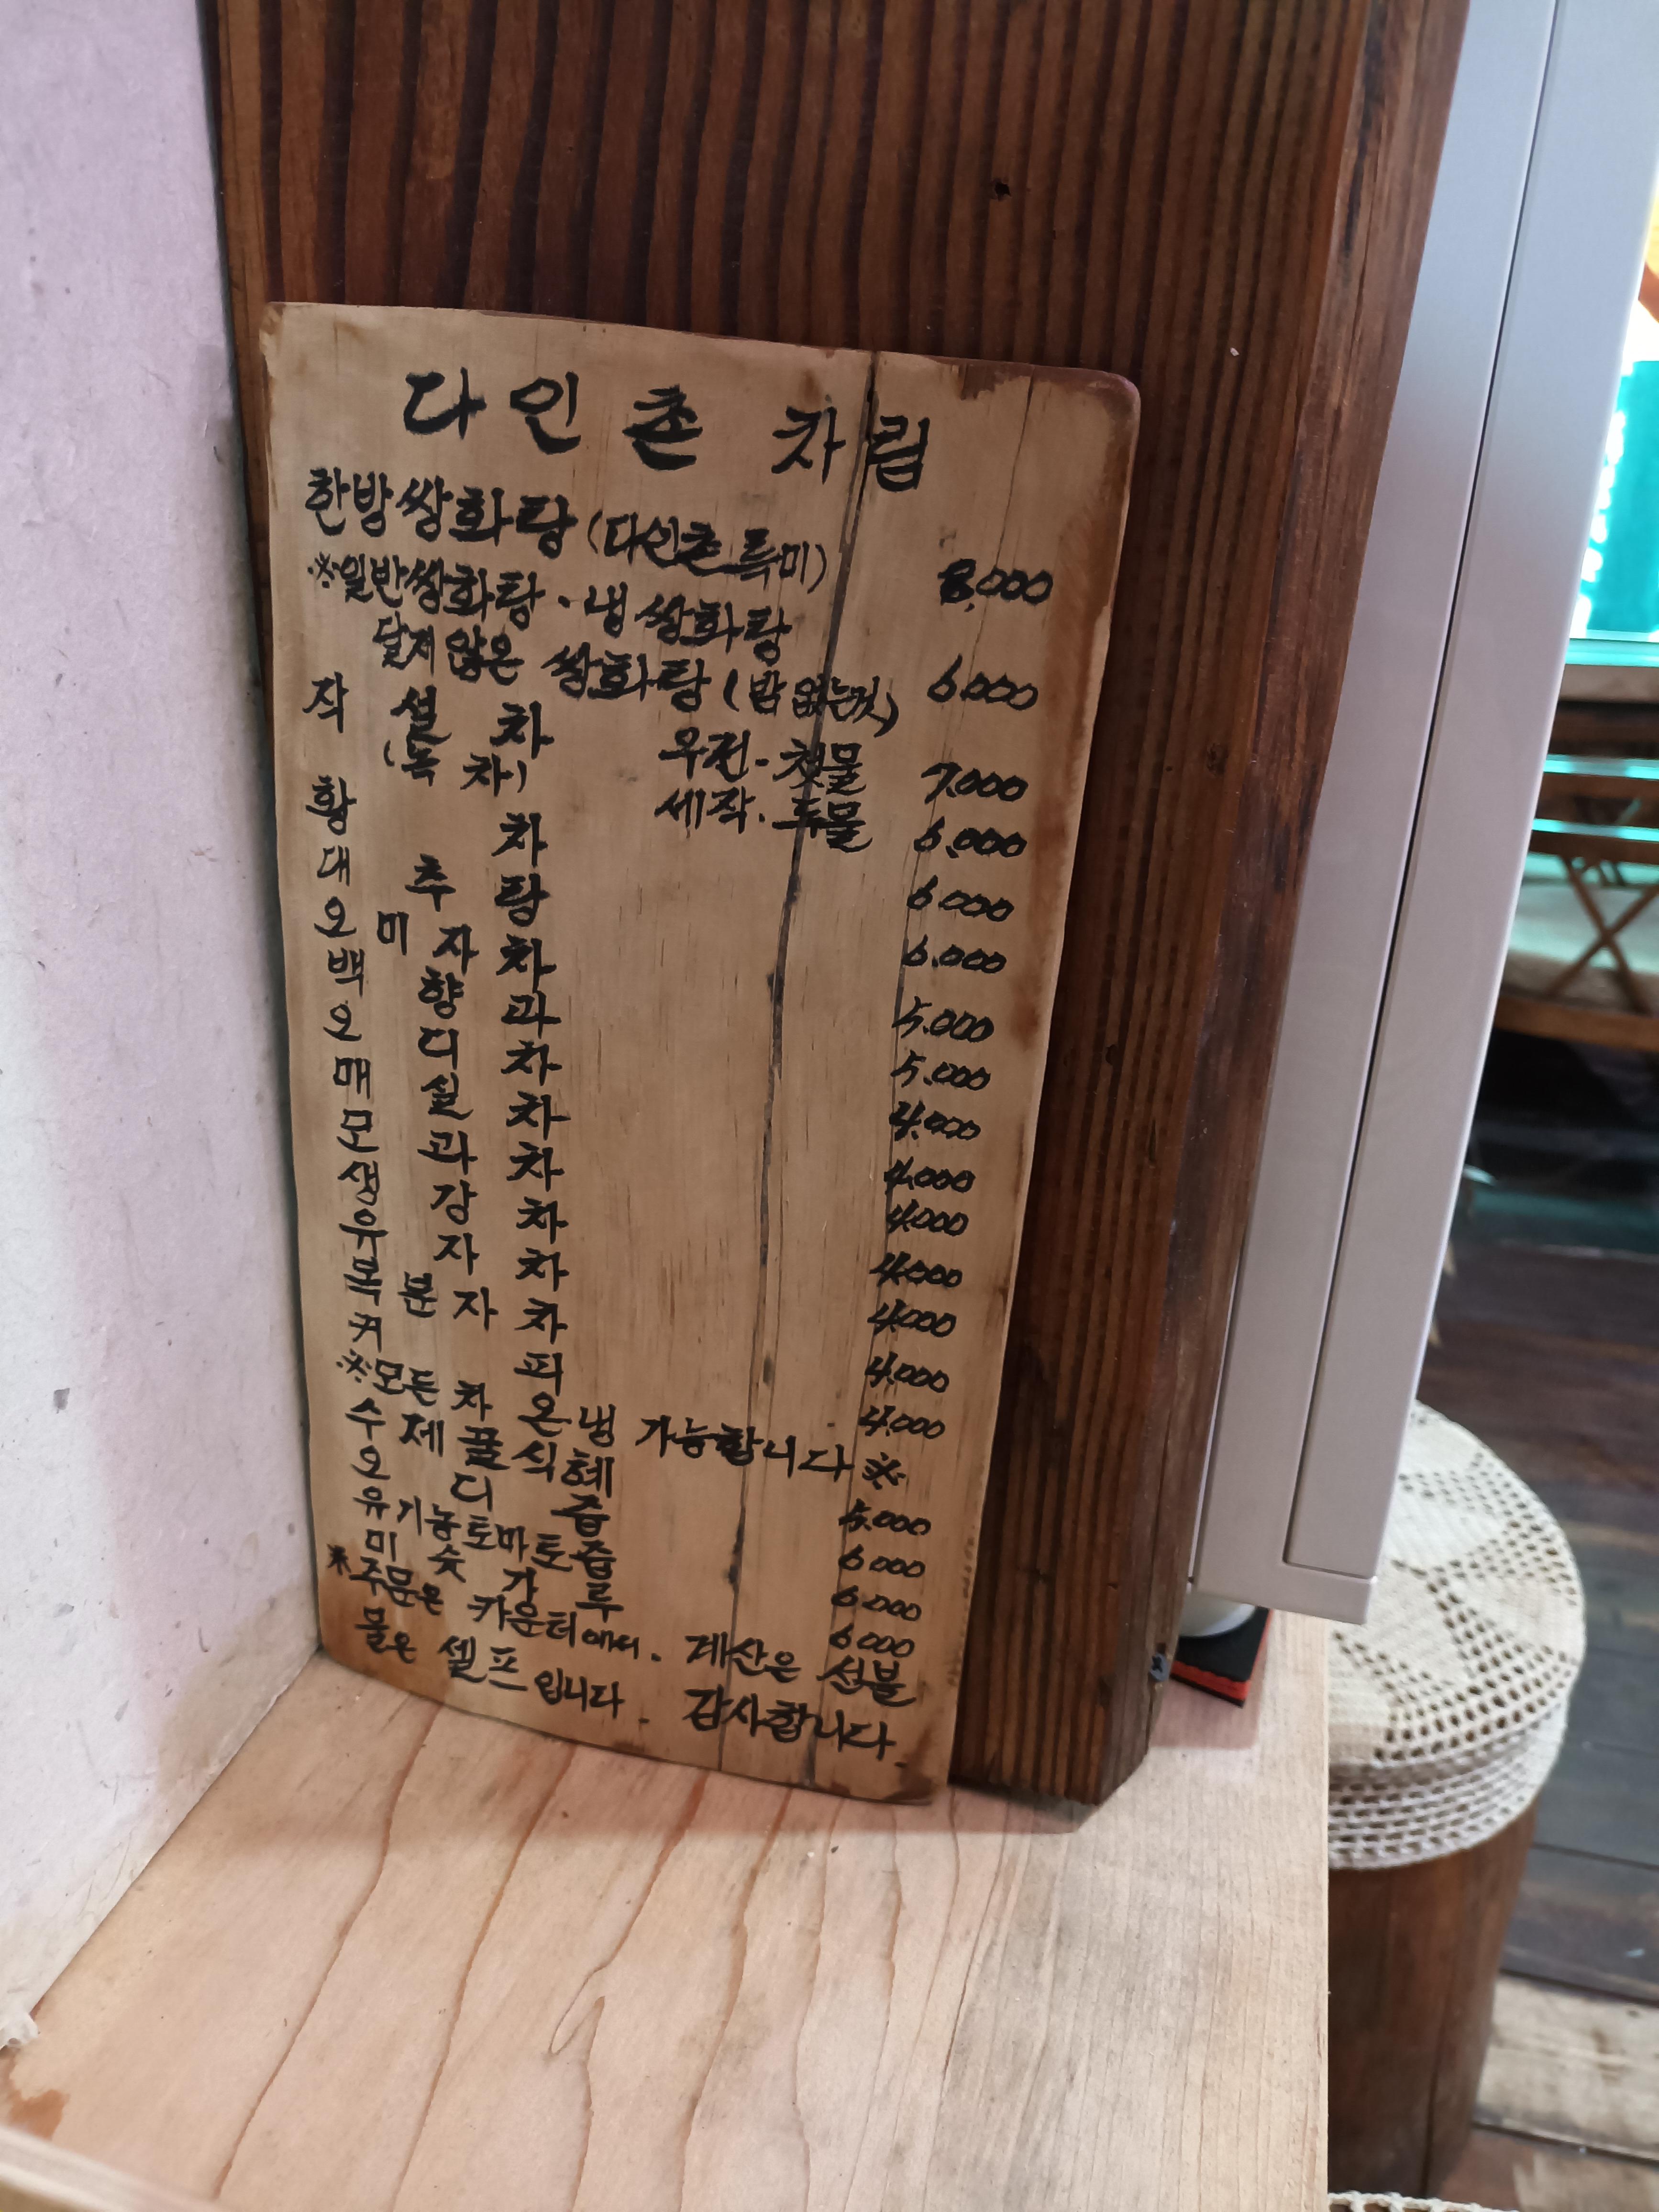 다인촌 차림
한방쌍화탕 (다인촌 특미) 8,000
※일반쌍화탕 · 냉쌍화탕
달지않은 쌍화탕 (밤없는것) 6.000
작 설 차 우전 - 첫물 7.000
(녹 차) 세작 · 두물 6.000
황 차 6.000
대 추 탕 6.000
오 미 자 차 5.000
백 향 과 5.000
오 디 차 4.000
매 실 차 4.000
모 과 차 4.000
생 강 차 4.000
유 자 차 4.000
복 분 자 차 4.000
커 피 4.000
※모든 차 온·냉 가능합니다 ※
수 제 꿀 식혜 5.000
오 디 즙 6.000
유기농토마토즙 6.000
미 숫 가 루 6.000
※주문은 카운터에서. 계산은 선불
물은 셀프 입니다. 감사합니다.